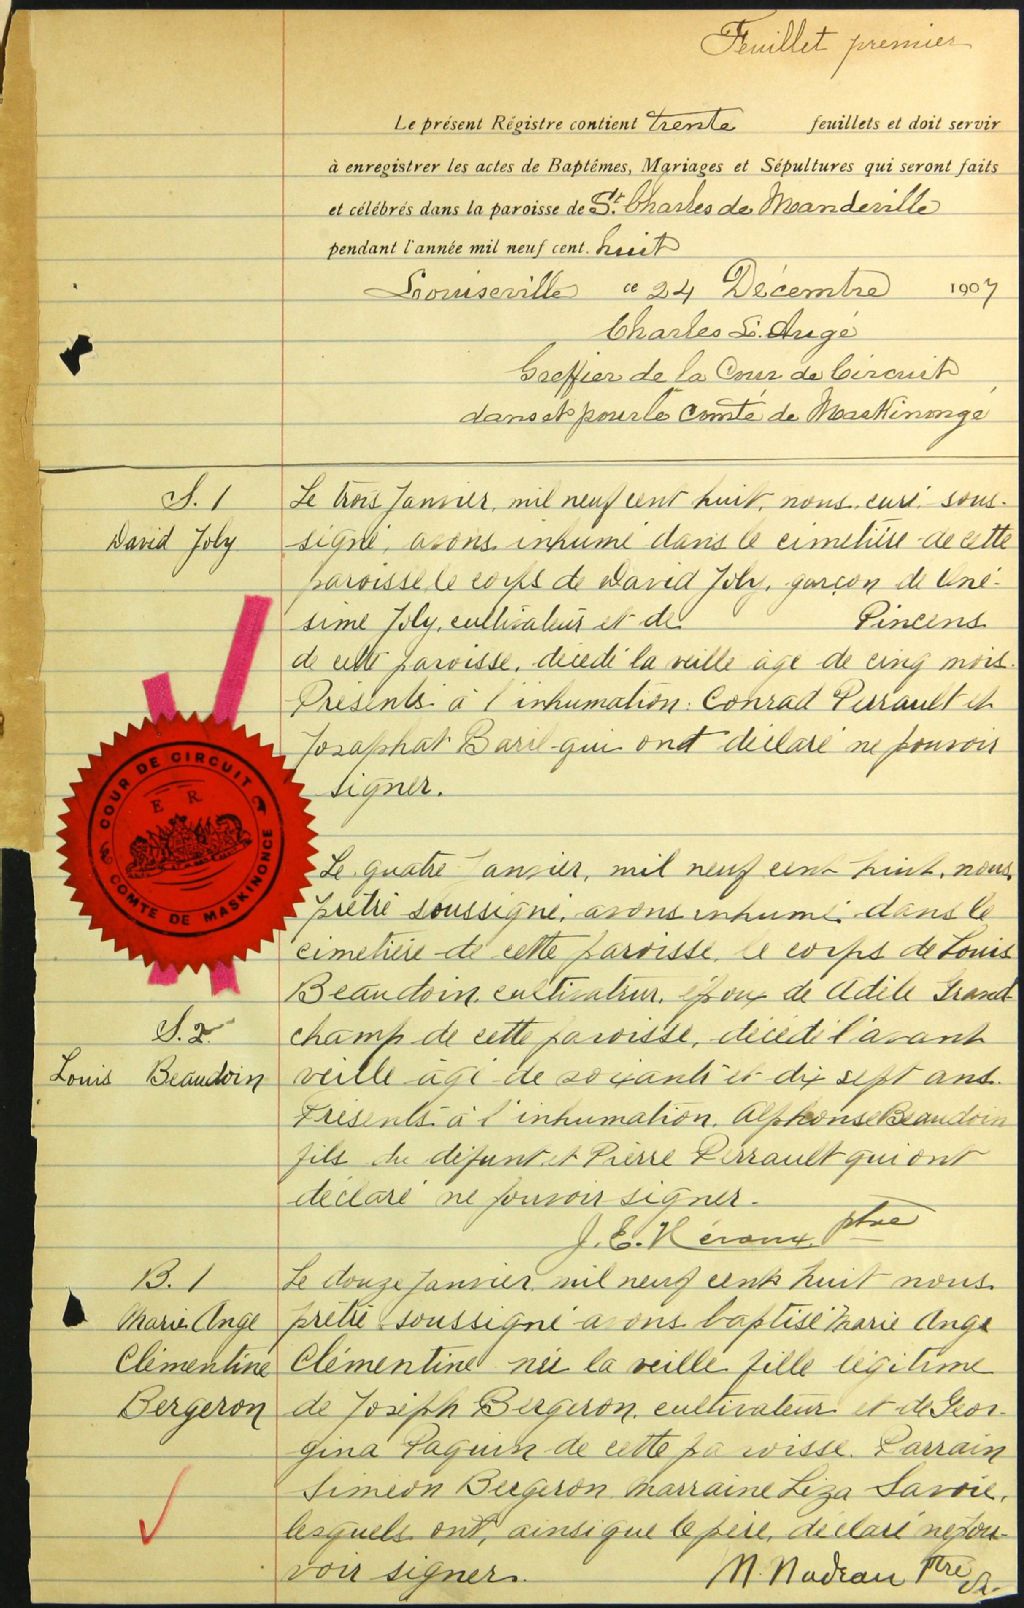 Feuillet premier
Le présent Régistre contient trente feuillets et doit servir
à enregistrer les actes de Baptêmes, Mariages et Sépultures qui seront faits
et célébrés dans la paroisse de St. Charles de Mandeville
pendant l'année mil neuf cent. huit
Louiseville ce 24 Décembre 1907
Charles L. Augé
Greffier de la Cour de Circuit
dans et pour le Comté de Maskinongé
S. 1
David Joly
Le trois Janvier, mil neuf cent huit, nous, curé sous-
signé, avons inhumé dans le cimetière de cette
paroisse le corps de David Joly, garçon de Oné-
sime Joly, cultivateur et de Pincens
de cette paroisse, décédé la veille âgé de cinq mois.
Présents à l'inhumation: Conrad Perrault et
Josaphat Baril qui ont déclaré ne pouvoir
signer.
COUR DE CIRCUIT
E R
COMTE DE MASKINONGE
Le quatre Janvier, mil neuf cent huit, nous,
prêtre soussigné, avons inhumé dans le
cimetière de cette paroisse, le corps de Louis
Beaudoin, cultivateur, époux de Adèle Grand
champ de cette paroisse, décédé l'avant
S. 2
Louis Beaudoin
veille âgé de soixante et dix sept ans.
Présents à l'inhumation, Alphonse Beaudoin
fils du défunt et Pierre Perrault qui ont
déclaré ne pouvoir signer.
J. E. Héroux, ptre
B. 1
Marie Ange
Clémentine
Bergeron
Le douze Janvier, mil neuf cent huit nous
prêtre soussigné avons baptisé Marie Ange
Clémentine née la veille fille légitime
de Joseph Bergeron, cultivateur et de Geor-
gina Paquin de cette paroisse. Parrain
Siméon Bergeron marraine Liza Savoie,
lesquels ont, ainsi que le père, déclaré ne pou-
voir signer.
M. Nadeau Ptre